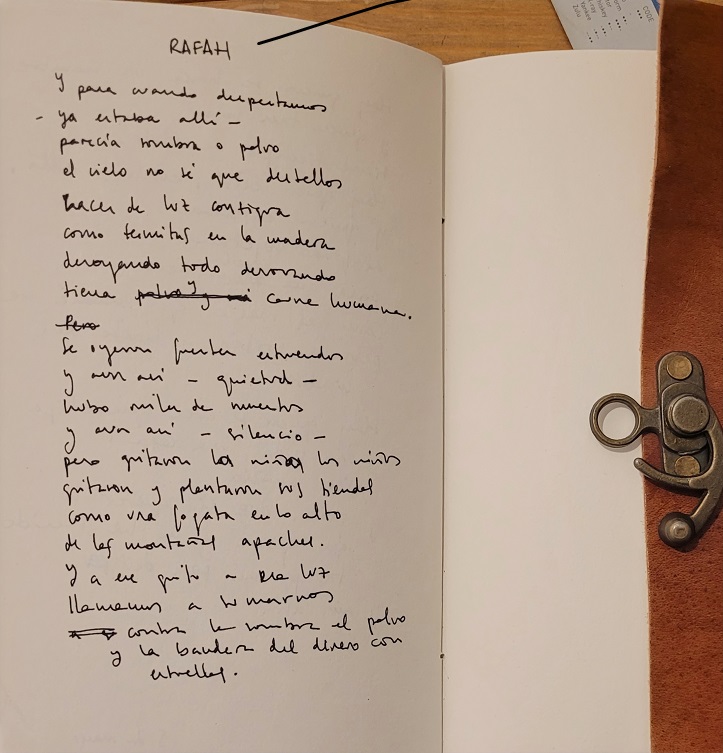 RAFAH
Y para cuando despertamos
- ya estaba allí -
parecía sombra o polvo
el cielo no sé que destellos
haces de luz contigua
como termitas en la madera
devorando todo
tierra y carne humana.
Pero
Se oyeron fuertes estruendos
y aun así - quietud -
hubo miles de muertos
y aun así - silencio -
pero gritaron los niños
gritaron y plantaron sus tiendas
como una fogata en lo alto
de las montañas apaches.
Y a ese grito a esa luz
llamamos a sumarnos
contra la sombra el polvo
y la bandera del dinero con
estrellas.